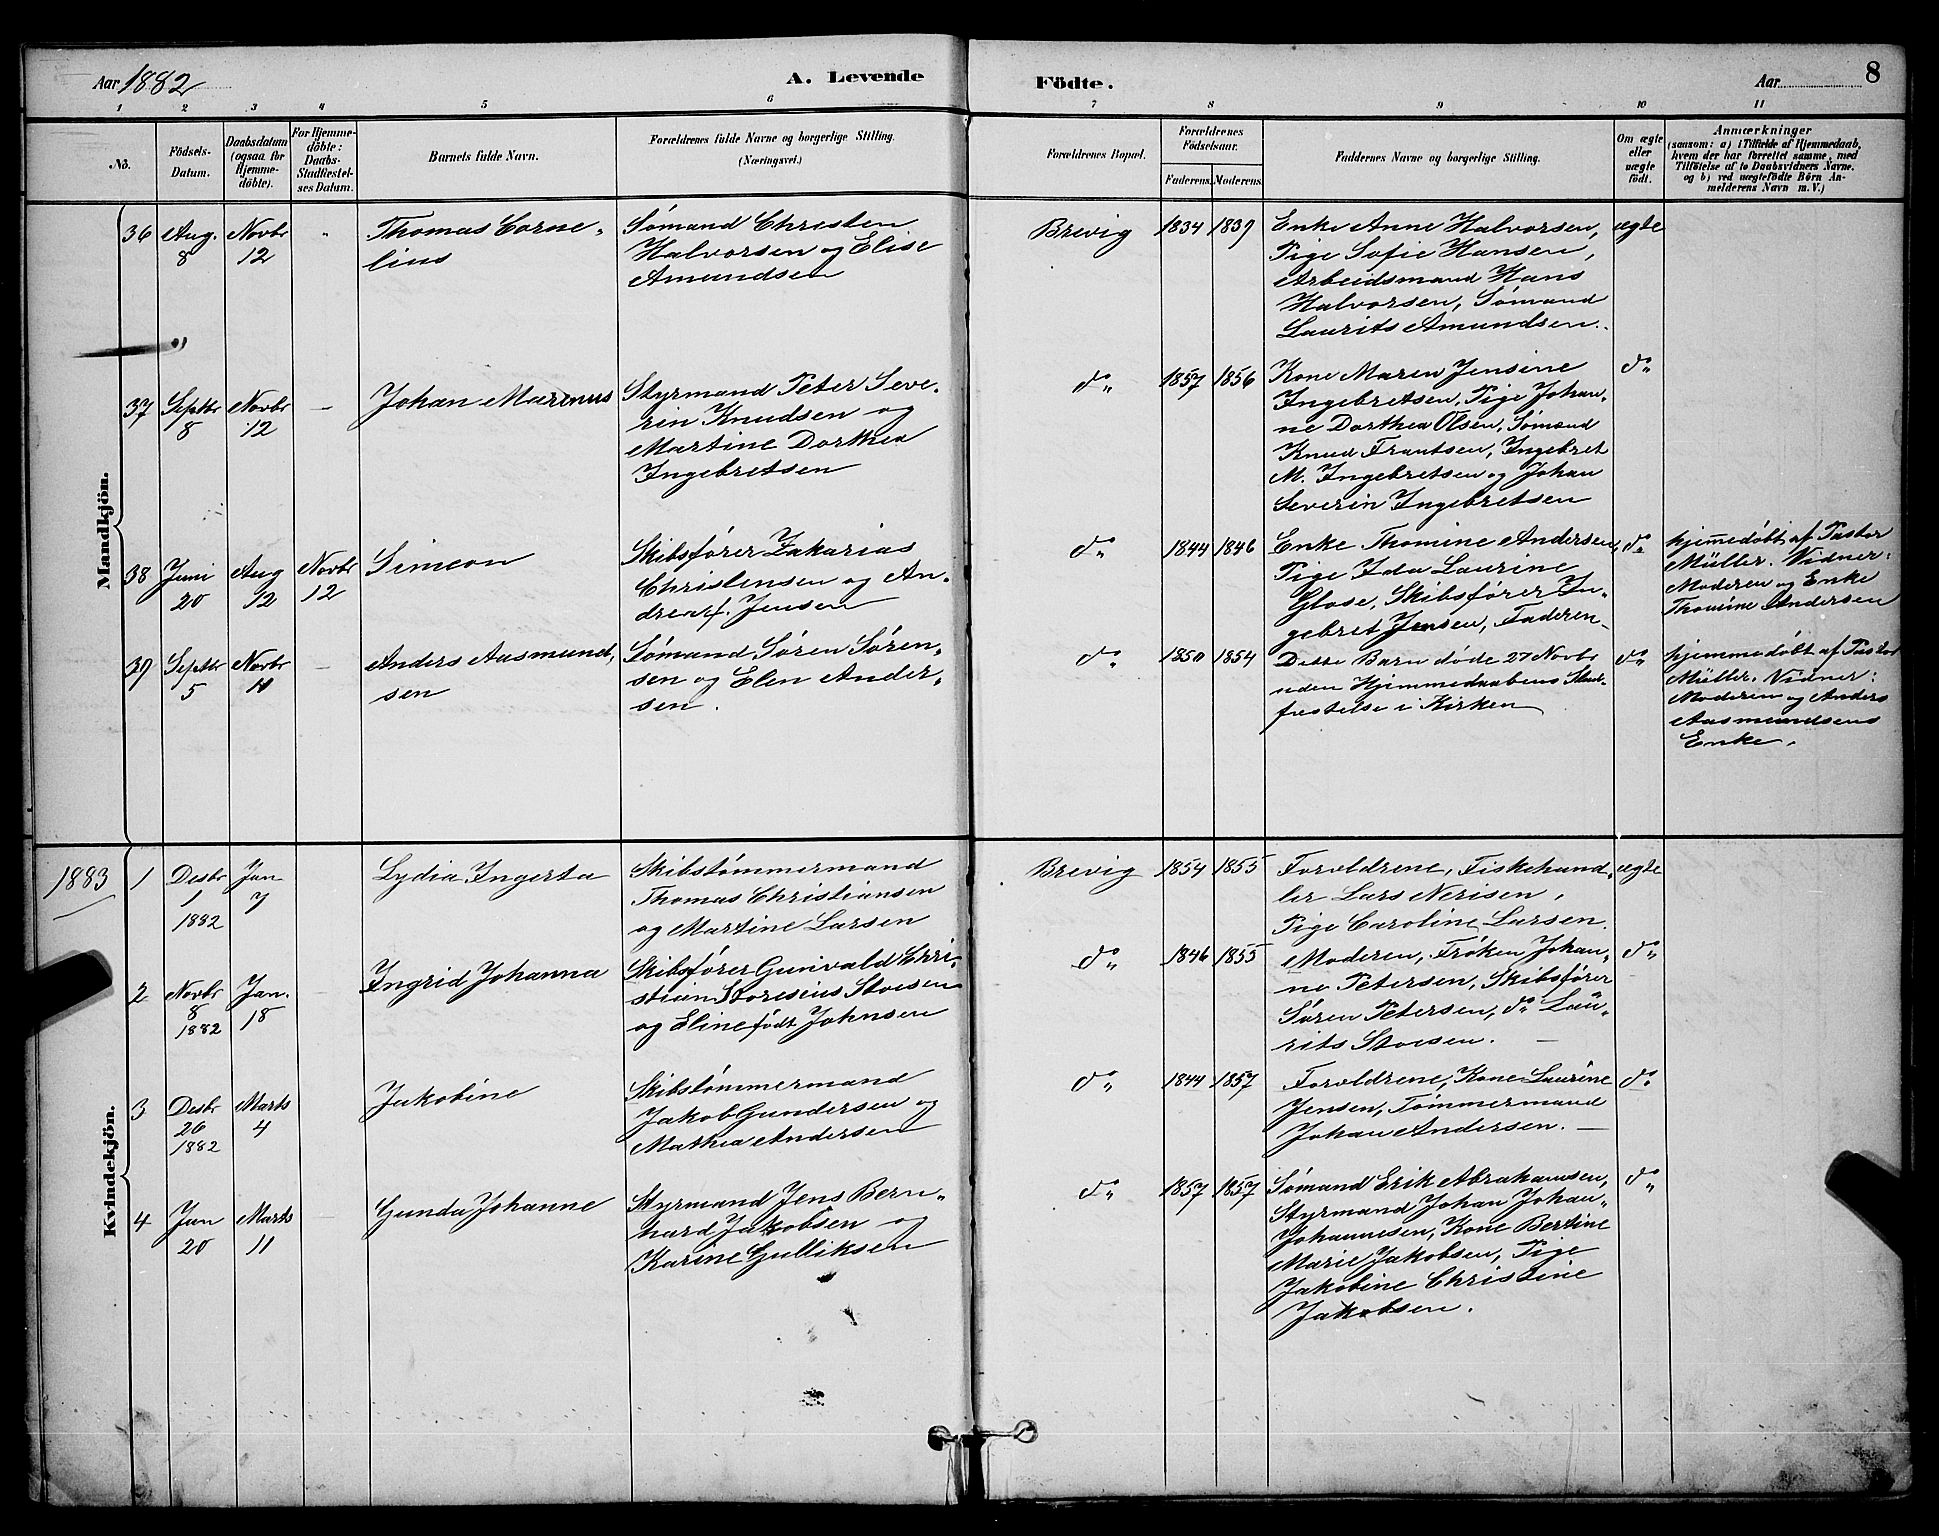 Aar 1882
A. Levende
Födte.
Aar
8
1 2 3 4 5 6 7 8 9 10 11
No.
Födsels-
Datum.
Daabsdatum
(ogsaa for
Hjemme-
döbte).
For Hjemme-
döbte:
Daabs-
Stadfæstel-
ses Datum.
Barnets fulde Navn.
Forældrenes fulde Navne og borgerlige Stilling.
(Næringsvei.)
Forældrenes Bopæl.
Forældrenes
Födselsaar.
Faderens. Moderens.
Faddernes Navne og borgerlige Stilling.
Om ægte
eller
uægte
födt.
Anmærkninger
(saasom: a) i Tilfælde af Hjemmedaab,
hvem der har forrettet samme, med
Tilföielse af to Daabsvidners Navne,
og b) ved uægtefödte Börn An-
melderens Navn m. V.)
Mandkjön.
36
Aug.
8
Novbr
12
"
Thomas Corne-
lius
Sømand Christen
Halvorsen og Elise
Amundsen
Brevig
1834
1839
Enke Anne Halvorsen,
Pige Sofie Hansen,
Arbeidsmand Hans
Halvorsen, Sømand
Laurits Amundsen.
ægte
37
Septbr
8
Novbr
12
—
Johan Marenus
Styrmand Peter Seve-
rin Knudsen og
Martine Dorthea
Ingebretsen
do
1857
1856
Kone Maren Jensine
Ingebretsen, Pige Johan-
ne Dorthea Olsen, Sømand
Knud Frantsen, Ingebret
M. Ingebretsen og Johan
Severin Ingebretsen
do
38
Juni
20
Aug
12
Novbr
12
Simeon
Skibsfører Zakarias
Christensen og An-
drea f. Jensen
do
1844
1846
Enke Thomine Andersen,
Pige Ida Laurine
Glose, Skibsfører In-
gebret Jensen, Faderen
do
hjemmedøbt af Pastor
Müller. Vidner:
Moderen og Enke
Thomine Andersen
39
Septbr
5
Novbr
11
—
Anders Aasmund,
sen
Sømand Søren Søren-
sen og Elen Ander-
sen.
do
1850
1854
Dette Barn døde 27 Novbr
uden Hjemmedaabens Stad-
fæstelse i Kirken
do
hjemmedøbt af Pastor
Müller. Vidner:
Moderen og Anders
Aasmundsens
Enke.
1883
Kvindekjön.
1
Desbr
1
1882
Jan
7
Lydia Ingerta
Skibstømmermand
Thomas Christiansen
og Martine Larsen
Brevig
1854
1855
Forældrene, Fiskehand-
ler Lars Nerisen,
Pige Caroline Larsen.
ægte
2
Novbr
8
1882
Jan.
18
Ingrid Johanna
Skibsfører Gunvald Chri-
stian Storesius Stoesen
og Eline født Johnsen
do
1846
1855
Moderen, Frøken Johan-
ne Petersen, Skibsfører
Søren Petersen, do Lau-
rits Stoesen. —
do
3
Desbr
26
1882
Marts
4
Jakobine
Skibstømmermand
Jakob Gundersen og
Mathea Andersen
do
1844
1857
Forældrene, Kone Laurine
Jensen, Tømmermand
Johan Andersen. —
do
4
Jan
20
Marts
11
Gunda Johanne
Styrmand Jens Bern-
hard Jakobsen og
Karine Gulliksen
do
1857
1857
Sømand Erik Abrahamsen,
Styrmand Johan Johan-
Johannesen, Kone Bertine
Marie Jakobsen, Pige
Jakobine Christine
Jakobsen.
do